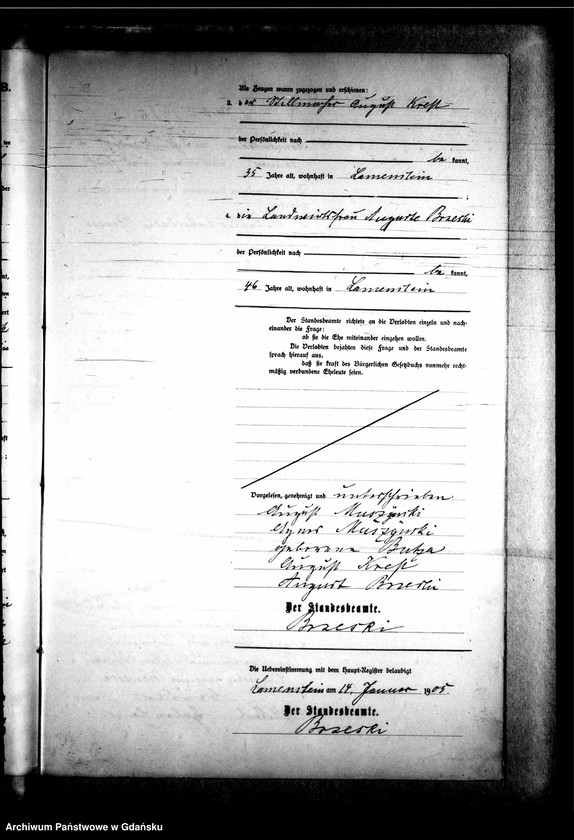 Als Zeugen waren zugezogen und erschienen:
3. der Stellmacher August Kreft
der Persönlichkeit nach
be kannt,
35 Jahre alt, wohnhaft in Lamenstein
;
4. die Landwirtsfrau Auguste Brzeski
der Persönlichkeit nach
be kannt,
46 Jahre alt, wohnhaft in Lamenstein
Der Standesbeamte richtete an die Verlobten einzeln und nach-
einander die Frage:
ob sie die Ehe miteinander eingehen wollen.
Die Verlobten bejahten diese Frage und der Standesbeamte
sprach hierauf aus,
daß sie kraft des Bürgerlichen Gesetzbuchs nunmehr recht-
mäßig verbundene Eheleute seien.
Vorgelesen, genehmigt und unterschrieben
August Muszynski
Agnes Muszynski
geborene
August Kreft
August Brzeski
Der Standesbeamte.
Brzeski
Die Uebereinstimmung mit dem Haupt-Register beglaubigt
Lamenstein am 14. Januar 1905.
Der Standesbeamte.
Brzeski
Archiwum Państwowe w Gdańsku